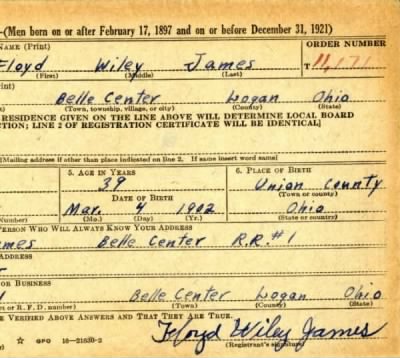 —(Men born on or after February 17, 1897 and on or before December 31, 1921)
NAME (Print) ORDER NUMBER
Floyd Wiley James T
(First) (Middle) (Last)
Belle Center Logan Ohio
(Town, township, village, or city) (County) (State)
RESIDENCE GIVEN ON THE LINE ABOVE WILL DETERMINE LOCAL BOARD
CTION; LINE 2 OF REGISTRATION CERTIFICATE WILL BE IDENTICAL]
[Mailing address if other than place indicated on line 2. If same insert word same]
5. AGE IN YEARS 6. PLACE OF BIRTH
39 Union County
(Town or county)
DATE OF BIRTH
Mar. 4 1902 Ohio
(Mo.) (Day) (Yr.) (State or country)
PERSON WHO WILL ALWAYS KNOW YOUR ADDRESS
ames Belle Center R.R. #1
OR BUSINESS
Belle Center Logan Ohio
or R. F. D. number) (Town) (County) (State)
E VERIFIED ABOVE ANSWERS AND THAT THEY ARE TRUE.
Floyd Wiley James
GPO 16—21630-2 (Registrant's signature)